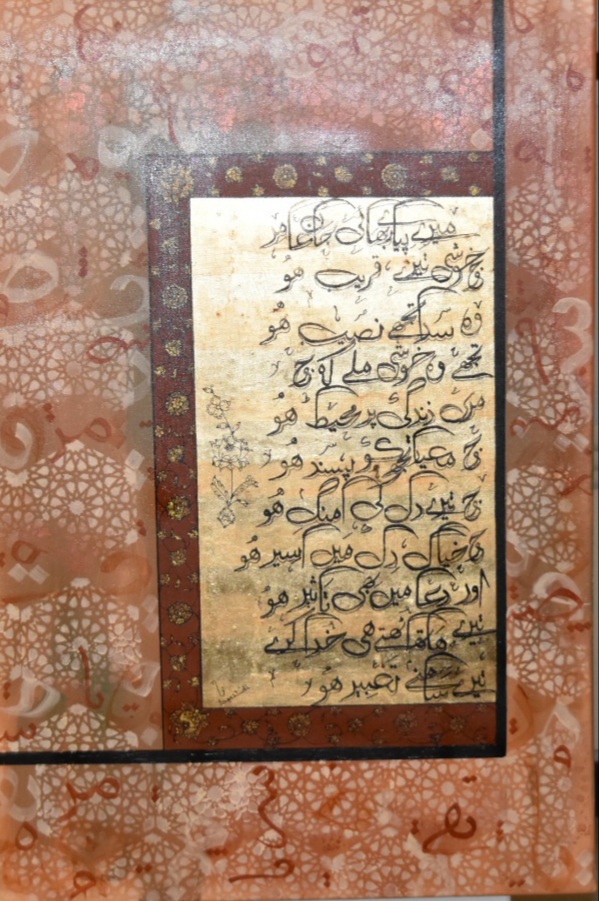 میرے پیارے بھائی جان عامر
جو خوشی تیرے قریب ہو
وہ سدا تجھے نصیب ہو
تجھے وہ خوشی ملے کہ جو
مری زندگی پر محیط ہو
جو معیار تجھ کو پسند ہو
جو تیرے دل کی امنگ ہو
جو خیال دل میں اسیر ہو
اور دعا میں بھی تاثیر ہو
تیرے ہاتھ اٹھتے ہی خدا کرے
تیرے سامنے تعبیر ہو